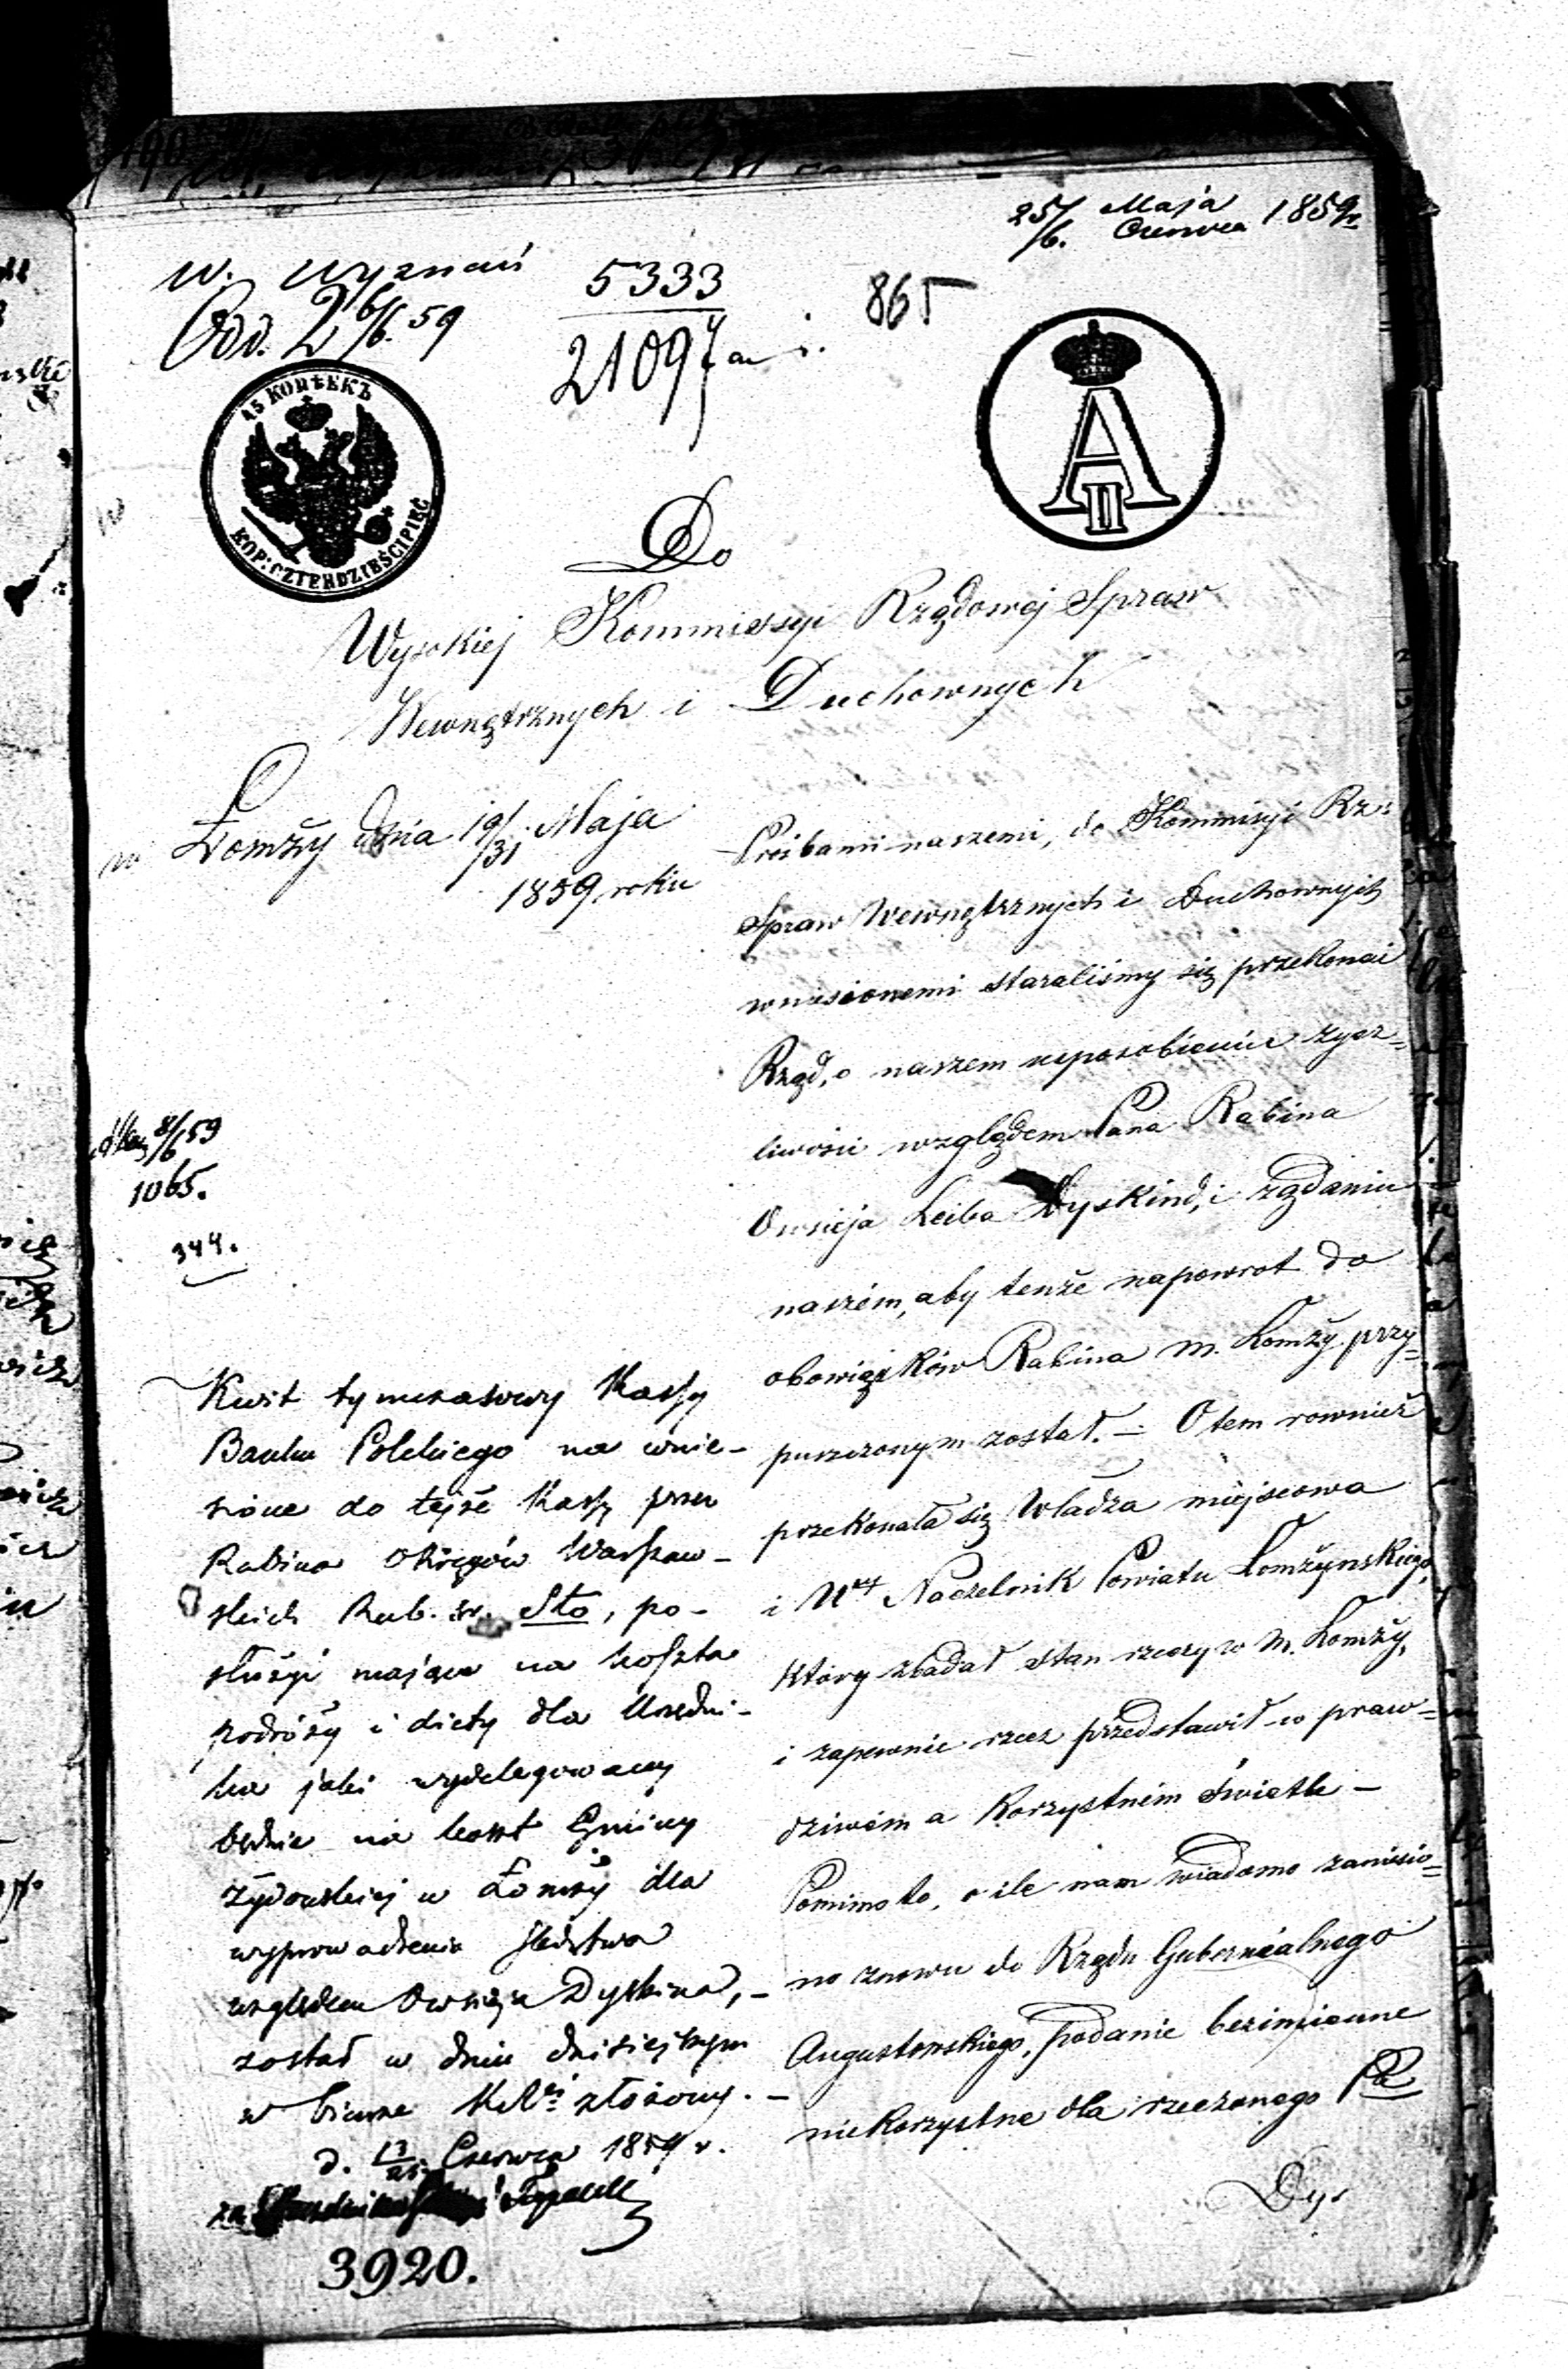 25/6. Maja Czerwca 1859 r
W. Wyznań
5333
865
Odd. 2 6/6. 59
21097
45 КОПѢЕКЪ
KOP: CZTERDZIEŚCI PIĘĆ
A II
Do
Wysokiej Kommissyi Rządowej Spraw
Wewnętrznych i Duchownych
w Łomży dnia 19/31. Maja
1859 roku
Prośbami naszemi, do Kommisyi Rz:
Spraw Wewnętrznych i Duchownych
wniesionemi staraliśmy się przekonać
Rząd, o naszem usposobieniu życz=
liwości względem Pana Rabina
Owsieja Leiba Dyskind, i żądaniu
naszém, aby tenże napowrot do
obowiązków Rabina m. Łomży przy=
puszczonym został. – O tem rownież
przekonała się Władza miejscowa
i Wny Naczelnik Powiatu Łomżynskiego,
który zbadał stan rzeczy w m. Łomży,
i zapewnie rzecz przedstawił w praw=
dziwém a korzystném świetle –
Pomimo to, o ile nam wiadomo zaniesio=
no znowu do Rządu Gubernialnego
Augustowskiego, podanie bezimienne
niekorzystne dla rzeczonego Pa
Dys
8/6 59
1065.
344.
Kwit tymczasowy Kassy
Banku Polskiego na wnie-
sione do tejże Kassy przez
Rabina Okręgów Warszaw-
skich Rub. sr. Sto, po-
służyć mające na koszta
podróży i diety dla Urzędni-
ka jaki wydelegowany
będzie na koszt Gminy
Żydowskiej w Łomży dla
wyprowadzenia śledztwa
względem Owsieja Dyskina, –
został w dniu dzisiejszym
w biurze złożony. –
d. 13/25 Czerwca 1859 r.
za
3920.